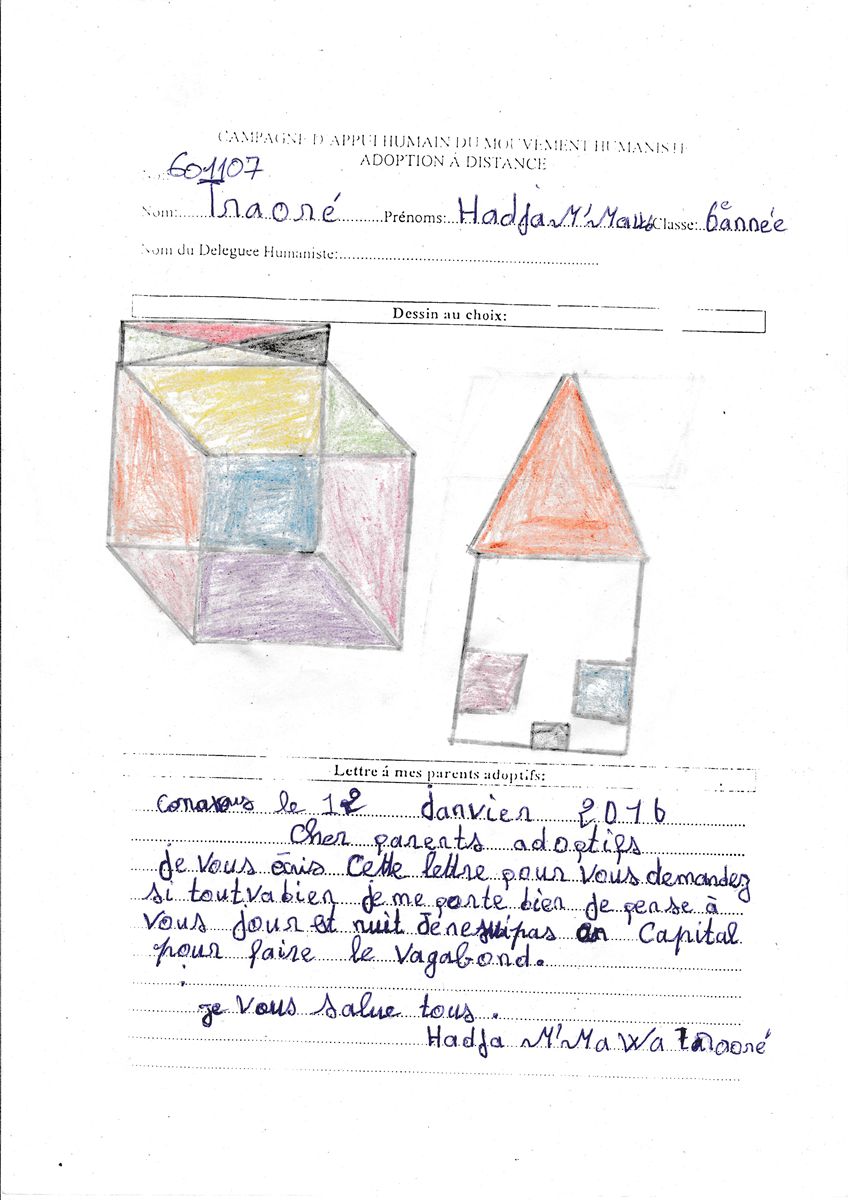 CAMPAGNE D'APPUI HUMAIN DU MOUVEMENT HUMANISTE
ADOPTION À DISTANCE
No: 601107
Nom: Traoré Prénoms: Hadja M'Mawa Classe: 6e année
Nom du Deleguee Humaniste:
Dessin au choix:
Lettre á mes parents adoptifs:
le 12 Janvier 2016
Cher parents adoptifs
Je vous écris Cette lettre pour vous demandez
si tout va bien Je me porte bien Je pense à
vous Jour et nuit Je ne suipas an Capital
pour faire le vagabond.
Je vous salue tous.
Hadja M'MaWa Traoré